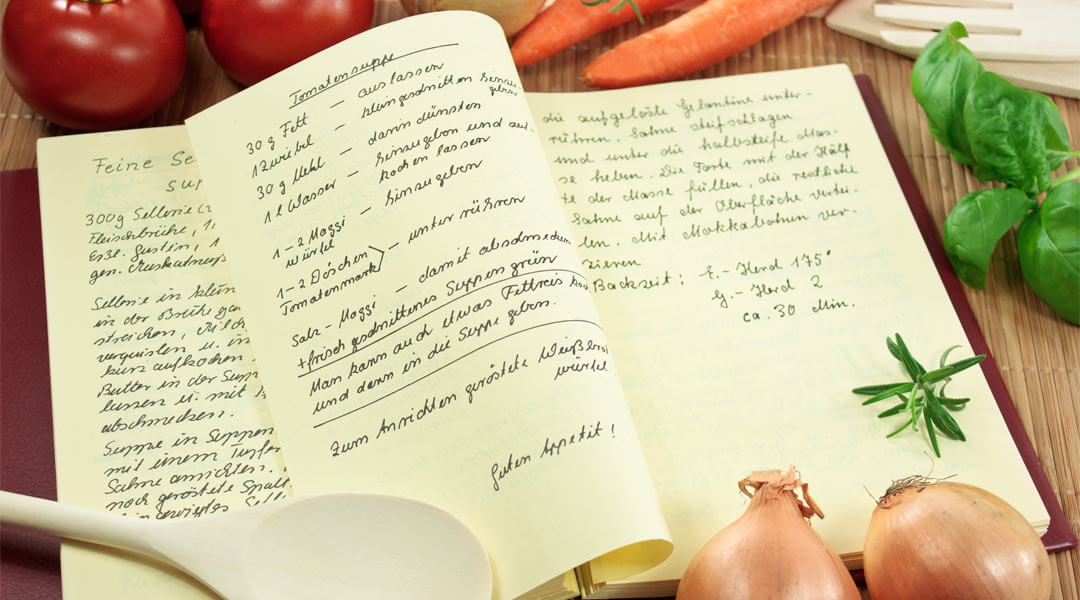 Feine Se
sup
300g Sellerie
Fleischbrühe, 1
Essl. Gustin, 1
gen. Muskatnuß
Sellerie in klein
in der Brühe ga
streichen, Milch
verquirlen u. in
kurz aufkochen
Butter in der Supp
lassen u. mit
abschmecken.
Suppe in Suppen
mit einem Tupfer
Sahne anrichten.
noch geröstete Spalt
Tomatensuppe
30 g Fett — auslassen
1 Zwiebel — kleingeschnitten hinzu
geben
30 g Mehl — darin dünsten
1 l Wasser — hinzugeben und auf-
kochen lassen
1-2 Maggi
würfel — hinzugeben
1-2 Döschen
Tomatenmark — unter rühren
Salz - Maggi — damit abschmecken
+ frisch geschnittenes Suppengrün
Man kann auch etwas Fettreis koch
und dann in die Suppe geben.
Zum Anrichten geröstete Weißbrot
würfel
Guten Appetit!
die aufgelöste Gelantine unter-
rühren. Sahne steifschlagen
und unter die halbsteife Mas-
se heben. Die Torte mit der Hälf
te der Masse füllen, die restliche
Sahne auf der Oberfläche vertei-
len. Mit Mokkabohnen ver-
zieren
Backzeit: E.-Herd 175°
G.-Herd 2
ca. 30 Min.